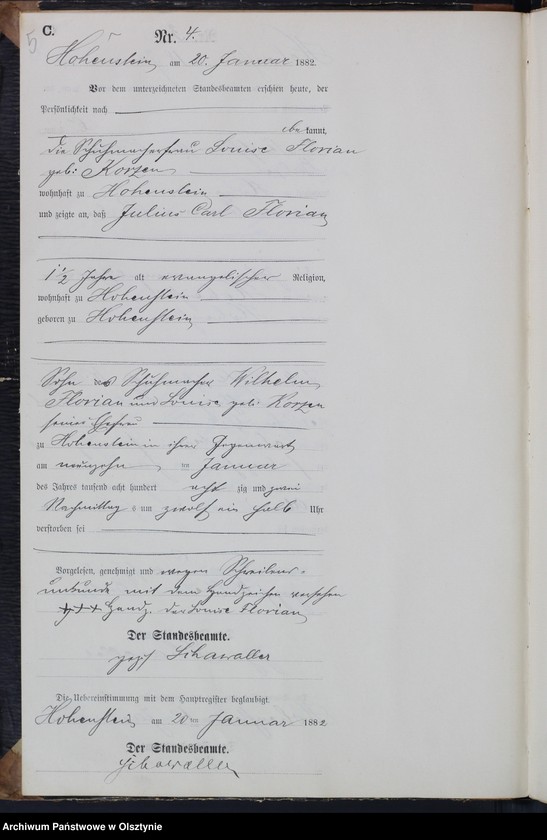 C.
5
Nr. 4.
Hohenstein am 20. Januar 1882.
Vor dem unterzeichneten Standesbeamten erschien heute, der
Persönlichkeit nach
be kannt,
die Schuhmacherfrau Louise Florian
geb: Korzen
wohnhaft zu Hohenstein
und zeigte an, daß Julius Carl Florian
1 1/2 Jahre alt evangelischer Religion,
wohnhaft zu Hohenstein
geboren zu Hohenstein
Sohn des Schuhmacher Wilhelm
Florian und Louise geb: Korzen
seiner Ehefrau
zu Hohenstein in ihrer Gegenwart
am neunzehn ten Januar
des Jahres tausend acht hundert acht zig und zwei
Nachmittag s um zwölf ein halb Uhr
verstorben sei
Vorgelesen, genehmigt und wegen Schreibens-
unkunde mit dem Handzeichen versehen
+++ Handz. der Louise Florian
Der Standesbeamte.
gez:
Die Uebereinstimmung mit dem Hauptregister beglaubigt.
Hohenstein am 20 ten Januar 1882
Der Standesbeamte.
Archiwum Państwowe w Olsztynie